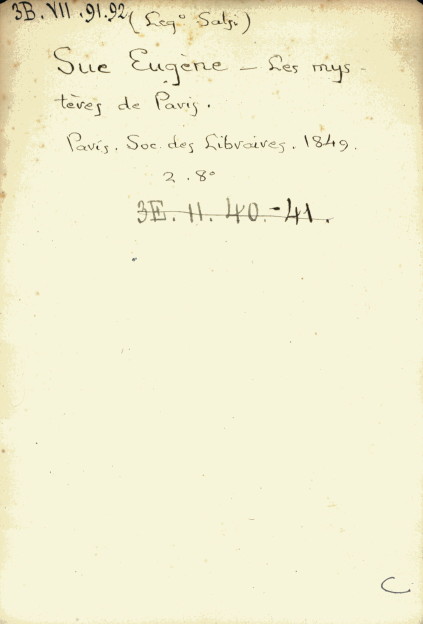 3B. VII .91.92 (Leg° Salsi)
Sue Eugène – Les mys-
tères de Paris.
Paris. Soc. des Libraires. 1849.
2 . 8°
3E. II. 40.-41.
C